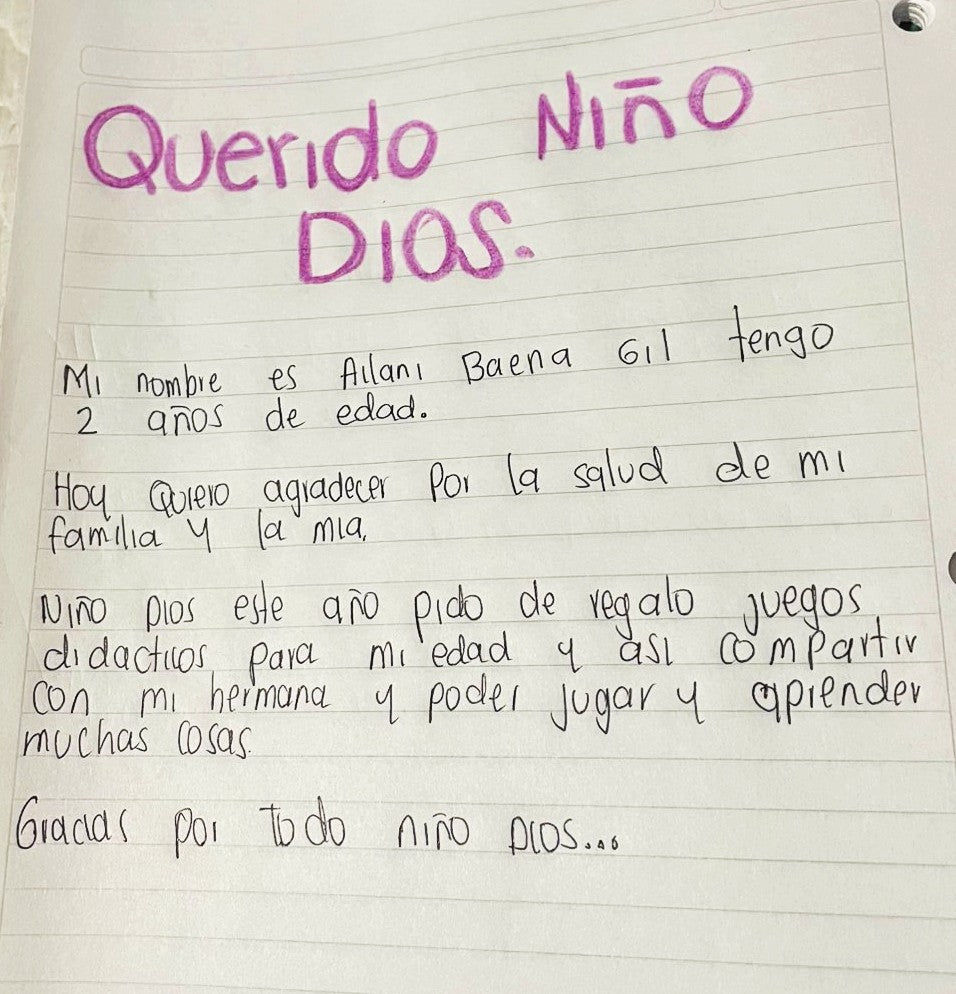 Querido Niño
Dios.
Mi nombre es Ailani Baena Gil tengo
2 años de edad.
Hoy Quiero agradecer Por la salud de mi
familia y la mia.
Niño Dios este año pido de regalo juegos
didacticos para mi edad y asi compartir
con mi hermana y poder jugar y aprender
muchas cosas.
Gracias por todo niño Dios...